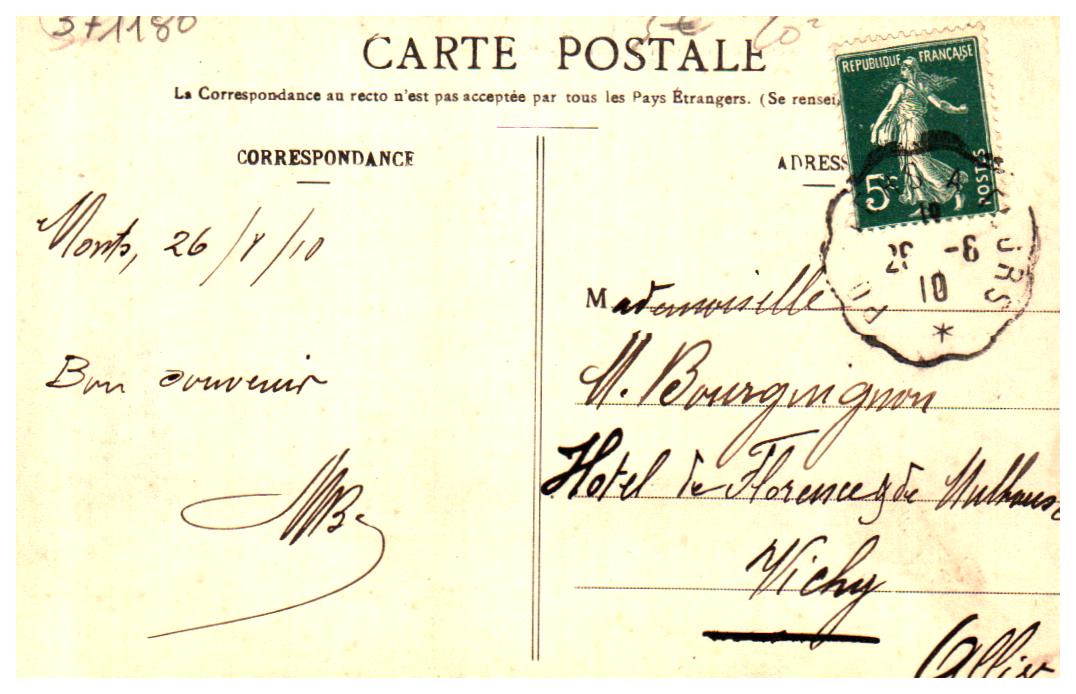 371180
CARTE POSTALE
La Correspondance au recto n'est pas acceptée par tous les Pays Étrangers. (Se rensei
REPUBLIQUE FRANÇAISE
5c POSTES
CORRESPONDANCE
Monts, 26/8/10
Bon souvenir
MB
ADRESS
A TOURS
10
Mademoiselle
M. Bourguignon
Hôtel de Florence & de Mulhouse
Vichy
Allier